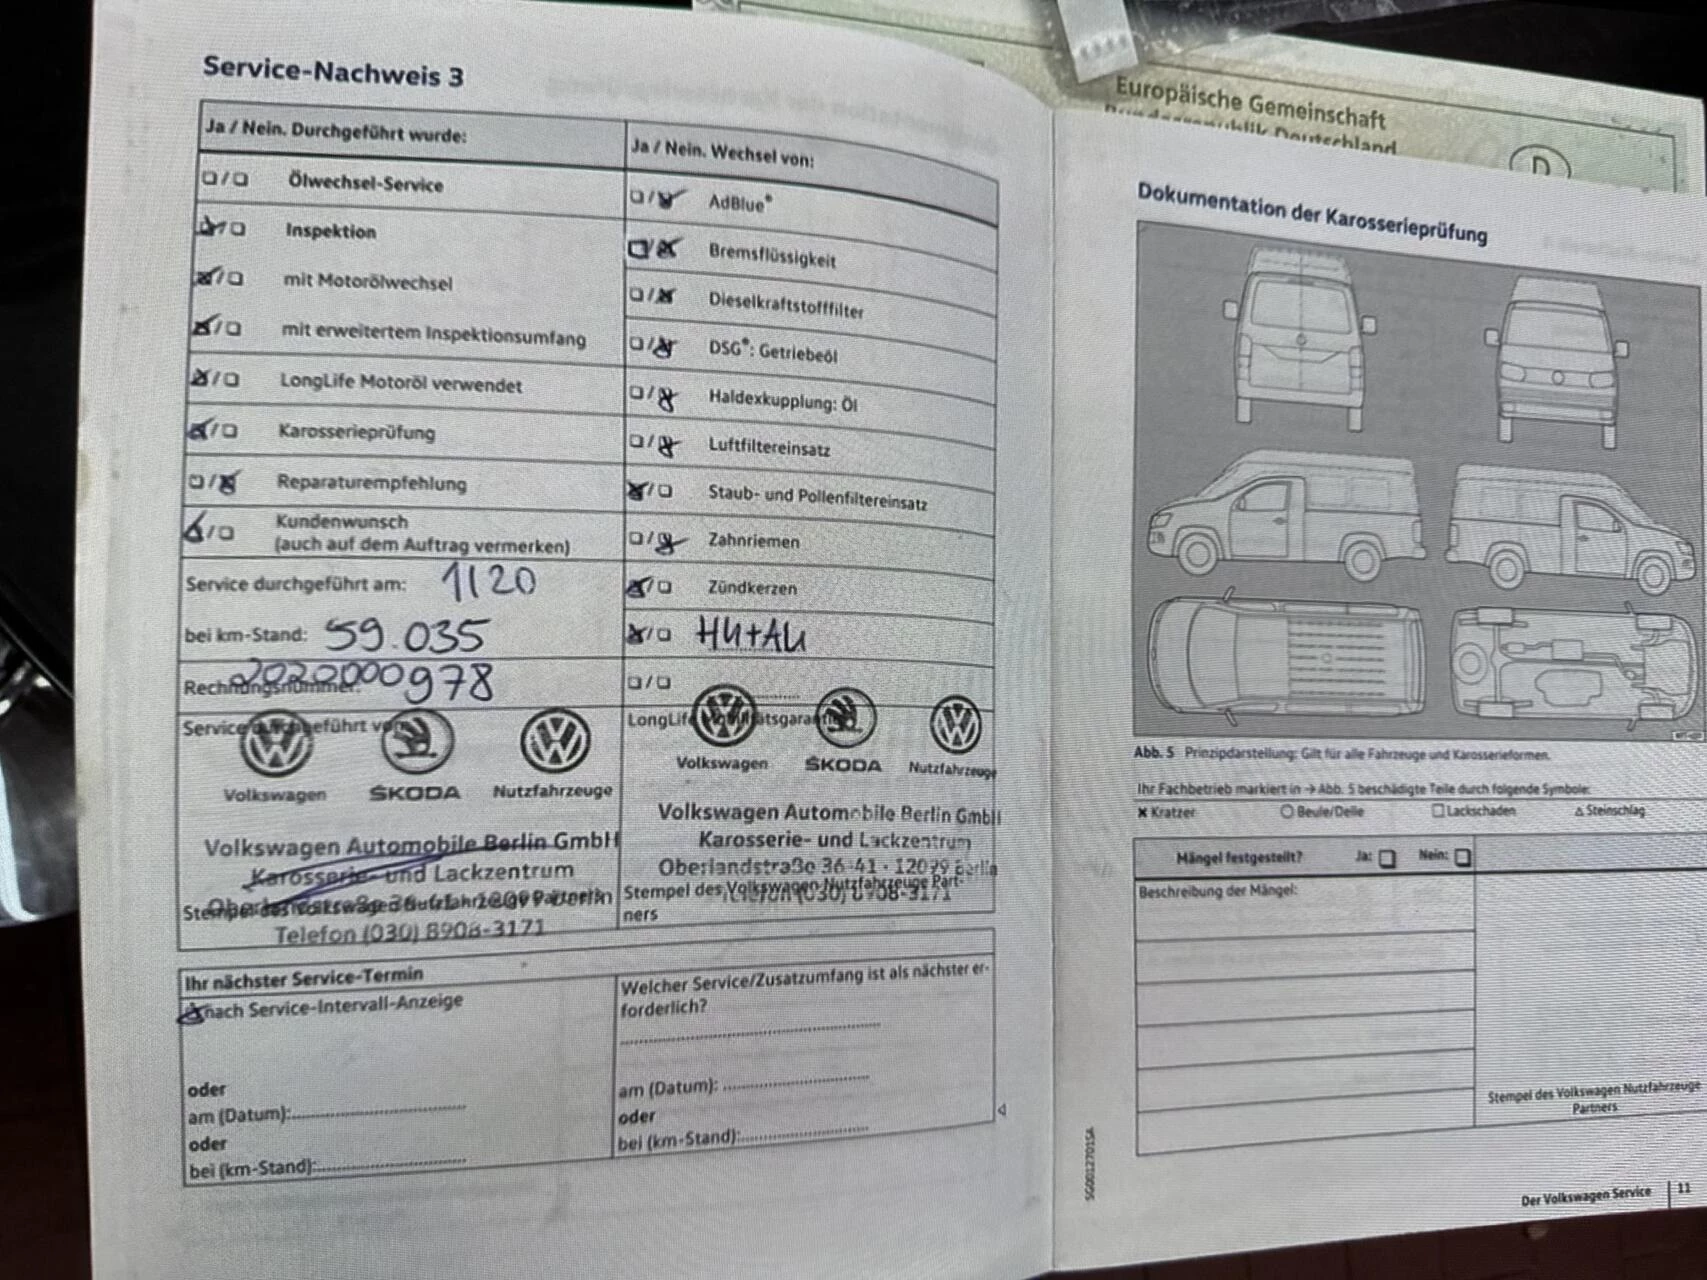 Service-Nachweis 3
Ja / Nein. Durchgeführt wurde:
Ölwechsel-Service
Inspektion
mit Motorölwechsel
mit erweitertem Inspektionsumfang
LongLife Motoröl verwendet
Karosserieprüfung
Reparaturempfehlung
Kundenwunsch
(auch auf dem Auftrag vermerken)
Service durchgeführt am: 1120
bei km-Stand: 59.035
Rechnungsnummer: 2020000978
Service durchgeführt von:
Volkswagen ŠKODA Nutzfahrzeuge
Volkswagen Automobile Berlin GmbH
Karosserie- und Lackzentrum
Oberlandstraße 36-41 · 12099 Berlin
Stempel des Volkswagen Nutzfahrzeuge Partners
Telefon (030) 8908-3171
Ja / Nein. Wechsel von:
AdBlue®
Bremsflüssigkeit
Dieselkraftstofffilter
DSG®: Getriebeöl
Haldexkupplung: Öl
Luftfiltereinsatz
Staub- und Pollenfiltereinsatz
Zahnriemen
Zündkerzen
HU+AU
LongLife Mobilitätsgarantie
Volkswagen ŠKODA Nutzfahrzeuge
Volkswagen Automobile Berlin GmbH
Karosserie- und Lackzentrum
Oberlandstraße 36-41 · 12099 Berlin
Stempel des Volkswagen Nutzfahrzeuge Part-
Telefon (030) 8908-3171
ners
Ihr nächster Service-Termin
nach Service-Intervall-Anzeige
oder
am (Datum):
oder
bei (km-Stand):
Welcher Service/Zusatzumfang ist als nächster er-
forderlich?
am (Datum):
oder
bei (km-Stand):
Europäische Gemeinschaft
Bundesrepublik Deutschland
D
Dokumentation der Karosserieprüfung
Abb. 5 Prinzipdarstellung: Gilt für alle Fahrzeuge und Karosserieformen.
Ihr Fachbetrieb markiert in → Abb. 5 beschädigte Teile durch folgende Symbole:
Kratzer Beule/Delle Lackschaden Steinschlag
Mängel festgestellt? Ja: Nein:
Beschreibung der Mängel:
Stempel des Volkswagen Nutzfahrzeuge
Partners
SG0012701SA
Der Volkswagen Service 11